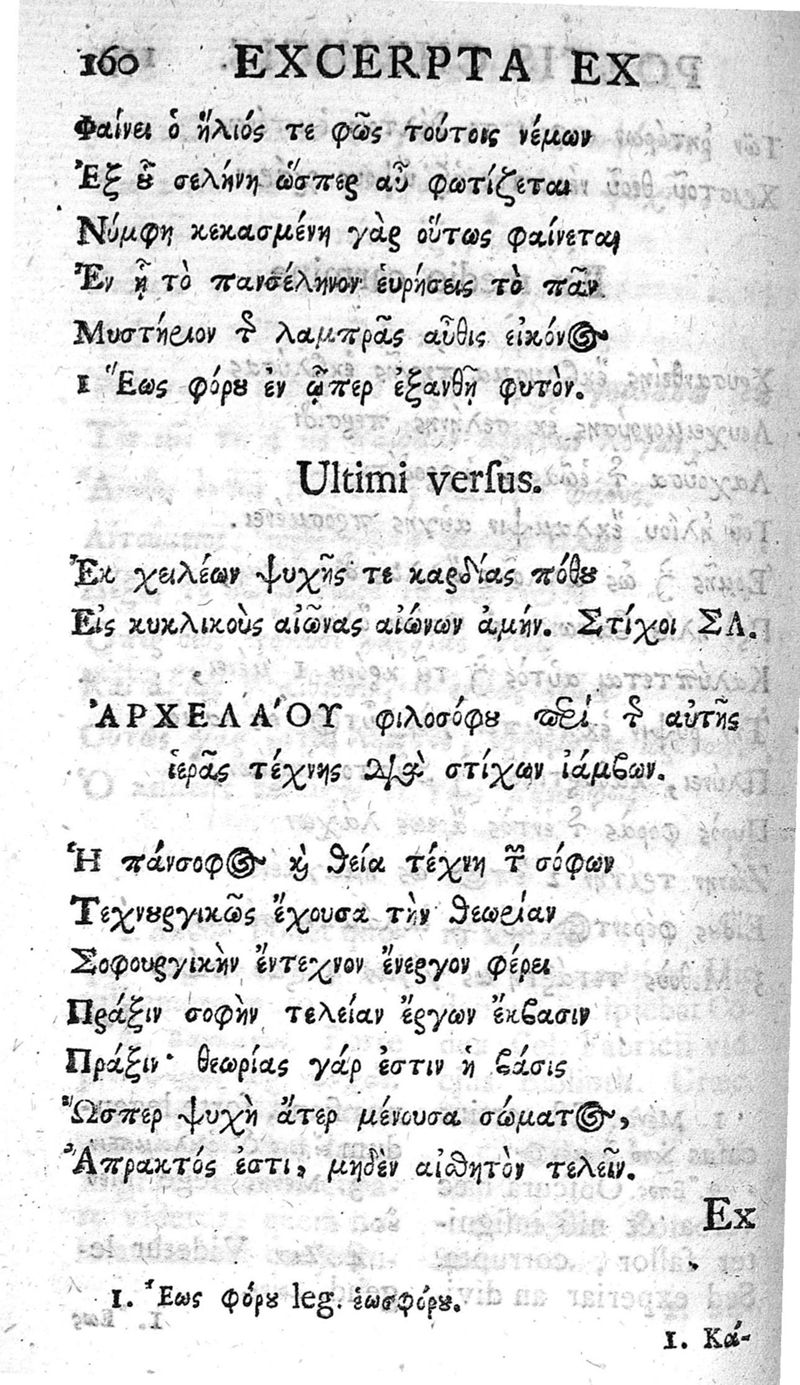 160 EXCERPTA EX
Φαίνει ὁ ἥλιός τε φῶς τούτοις νέμων
Ἐξ ȣ̃ σελήνη ὥσπερ αὖ φωτίζεται
Νύμφη κεκασμένη γὰρ οὕτως φαίνεται
Ἐν ᾗ τὸ πανσέληνον ἑυρήσεις τὸ πᾶν.
Μυστήριον τ͂ λαμπρᾶς αὖθις εἰκόνος
1 Ἕως φόρȣ ἐν ᾧπερ ἐξανθῇ φυτὸν.
Ultimi verſus.
Ἐκ χειλέων ψυχῆς τε καρδίας πόθȣ
Εἰς κυκλικοὺς αἰῶνας αἰώνων ἀμήν. Στίχοι ΣΛ.
ἈΡΧΕΛΑΊΟΥ φιλοσόφȣ περὶ τ͂ αὐτῆς
ἱερᾶς τέχνης διὰ στίχων ἰάμϐων.
Ἡ πάνσοφος ϗ ϑεία τέχνη τ͂ σόφων
Τεχνȣργικῶς ἔχουσα τὴν ϑεωρίαν
Σοφουργίκὴν ἔντεχνον ἔνεργον φέρει
Πράξιν σοφὴν τελείαν ἔργων ἔκϐασιν
Πράξιν· θεωρίας γάρ ἐστιν ἡ ϐάσις
Ὥσπερ ψυχὴ ἄτερ μένουσα σώματος,
Ἄπρακτός ἐστι, μηδὲν αἰσθητὸν τελεῖν.
Ex
1. Ἕως φόρȣ leg. ἑωσφόρȣ.
1. Κά-